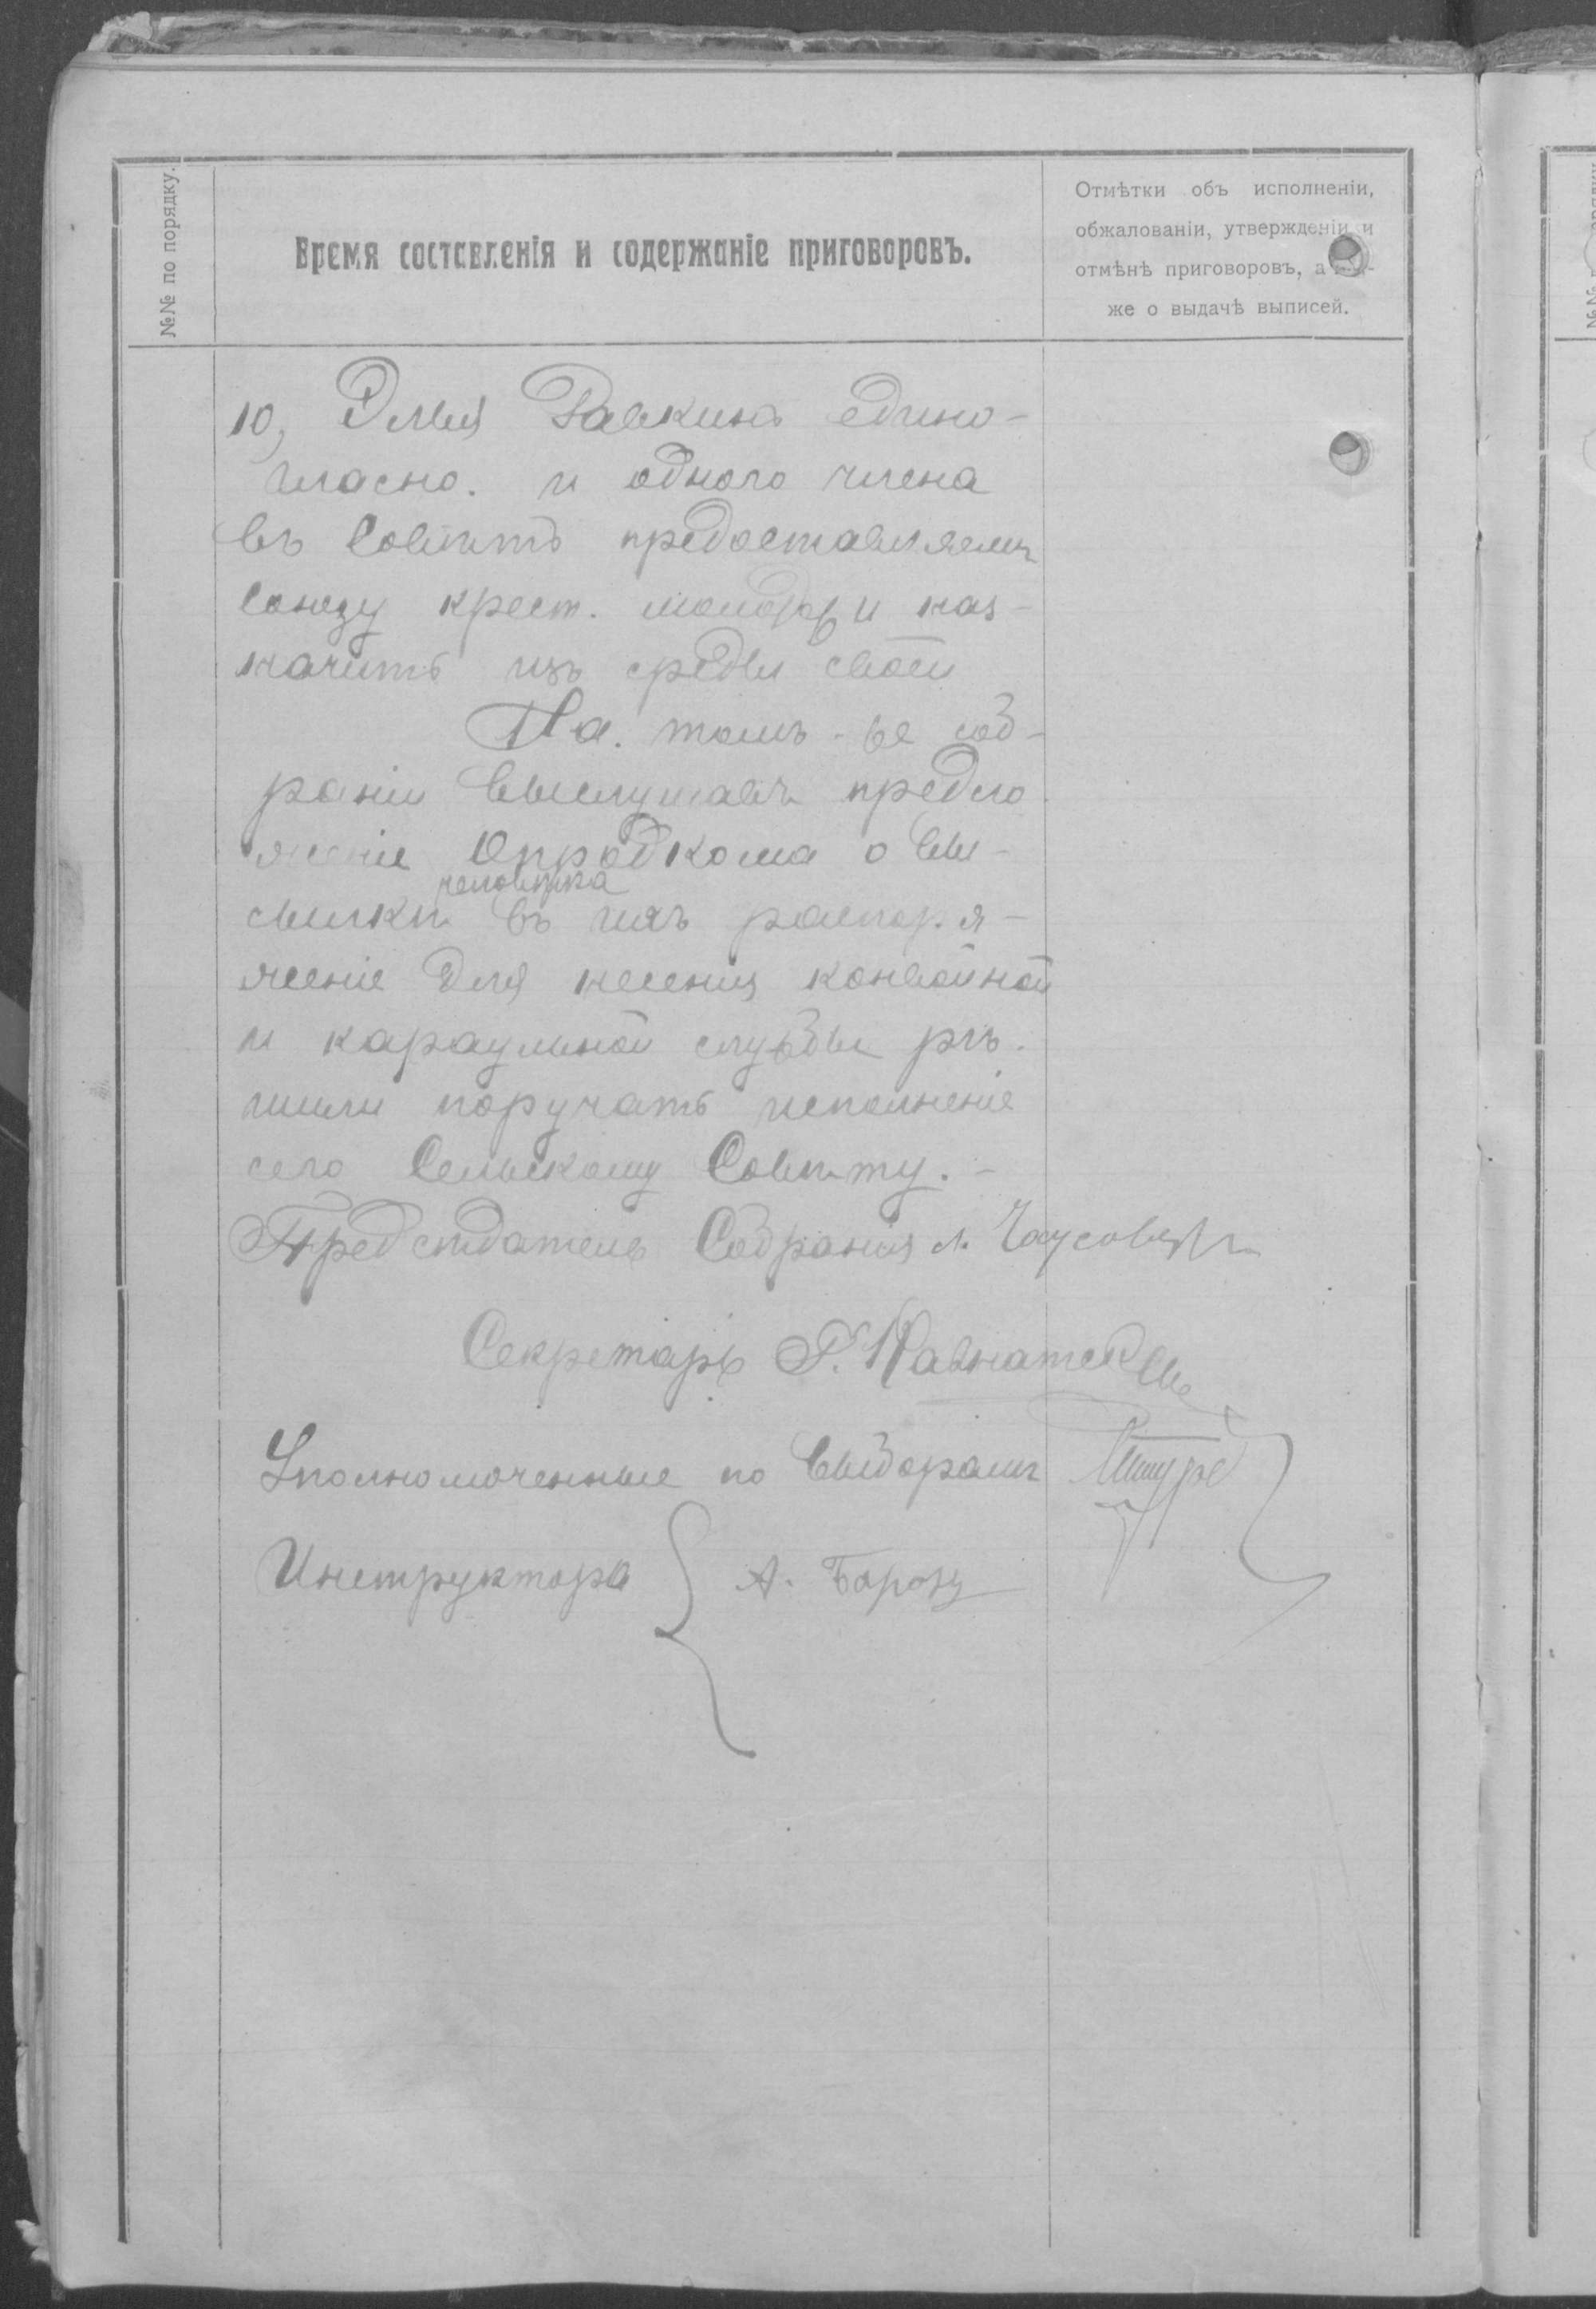 №№ по порядку.
Время составленія и содержаніе приговоровъ.
Отмѣтки объ исполненіи,
обжалованіи, утвержденіи и
отмѣнѣ приговоровъ, а
же о выдачѣ выписей.
10, едино-
гласно. и одного члена
въ Совѣтъ предоставляемъ
Союзу крест. наз-
начить изъ среды своей
На. томъ-же соб-
раніи выслушавъ предло
женіе Опродкома о вы-
человѣка
сылкѣ въ ихъ распоря-
женіе для несенія конвойной
и караульной службы рѣ.
шили поручать исполненіе
сего Сельскому Совѣту. -
Предсѣдатель Собранія
Секретарь
Уполномоченные по выборамъ
Инструктора А.